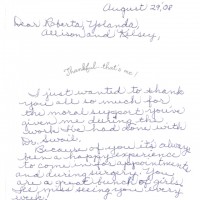 August 29, '08
Dear Roberta, Yolanda,
Allison and Kelsey,
Thankful-that's me!
I just wanted to thank
you all so much for
the moral support you've
given me during the
work I've had done with
Dr. Swoil.
Because of you its always
been a happy experience
to come in for appointments
and during surgery. You
are a great bunch of girls.
I'll miss seeing you every
week!